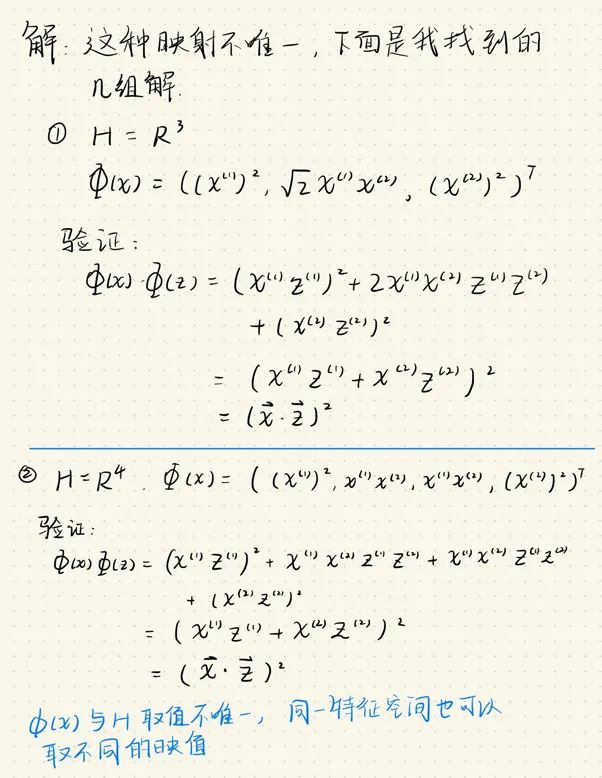 解: 这种映射不唯一, 下面是我找到的
几组解.
① H = R³
Φ(x) = ((x⁽¹⁾)², √2 x⁽¹⁾x⁽²⁾, (x⁽²⁾)²)ᵀ
验证:
Φ(x)·Φ(z) = (x⁽¹⁾z⁽¹⁾)² + 2x⁽¹⁾x⁽²⁾z⁽¹⁾z⁽²⁾
+ (x⁽²⁾z⁽²⁾)²
= (x⁽¹⁾z⁽¹⁾ + x⁽²⁾z⁽²⁾)²
= (x⃗·z⃗)²
② H = R⁴. Φ(x) = ((x⁽¹⁾)², x⁽¹⁾x⁽²⁾, x⁽¹⁾x⁽²⁾, (x⁽²⁾)²)ᵀ
验证:
Φ(x)Φ(z) = (x⁽¹⁾z⁽¹⁾)² + x⁽¹⁾x⁽²⁾z⁽¹⁾z⁽²⁾ + x⁽¹⁾x⁽²⁾z⁽¹⁾z⁽²⁾
+ (x⁽²⁾z⁽²⁾)²
= (x⁽¹⁾z⁽¹⁾ + x⁽²⁾z⁽²⁾)²
= (x⃗·z⃗)²
φ(x)与H取值不唯一, 同一特征空间也可以
取不同的映值